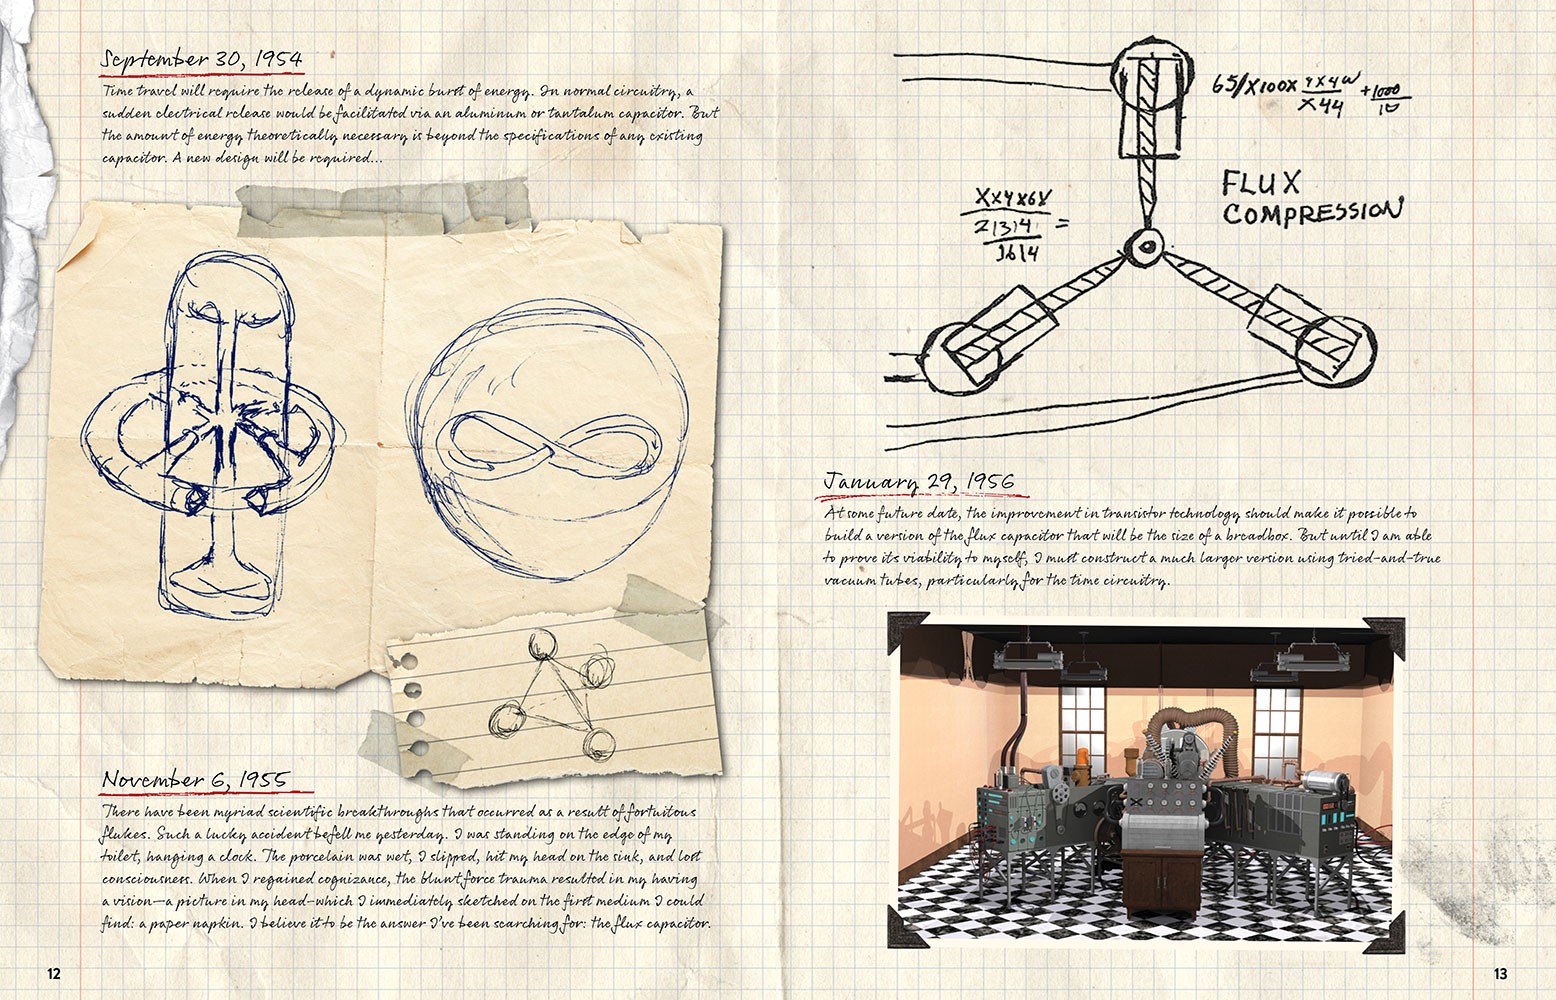 September 30, 1954
Time travel will require the release of a dynamic burst of energy. In normal circuitry, a
sudden electrical release would be facilitated via an aluminum or tantalum capacitor. But
the amount of energy theoretically necessary is beyond the specifications of any existing
capacitor. A new design will be required...
November 6, 1955
There have been myriad scientific breakthroughs that occurred as a result of fortuitous
flukes. Such a lucky accident befell me yesterday. I was standing on the edge of my
toilet, hanging a clock. The porcelain was wet, I slipped, hit my head on the sink, and lost
consciousness. When I regained cognizance, the blunt force trauma resulted in my having
a vision—a picture in my head—which I immediately sketched on the first medium I could
find: a paper napkin. I believe it to be the answer I've been searching for: the flux capacitor.
12
65/X100X
X44
+1000
10
FLUX
COMPRESSION
XX4X6X
21314 =
1614
January 29, 1956
At some future date, the improvement in transistor technology should make it possible to
build a version of the flux capacitor that will be the size of a breadbox. But until I am able
to prove its viability to myself, I must construct a much larger version using tried-and-true
vacuum tubes, particularly for the time circuitry.
13